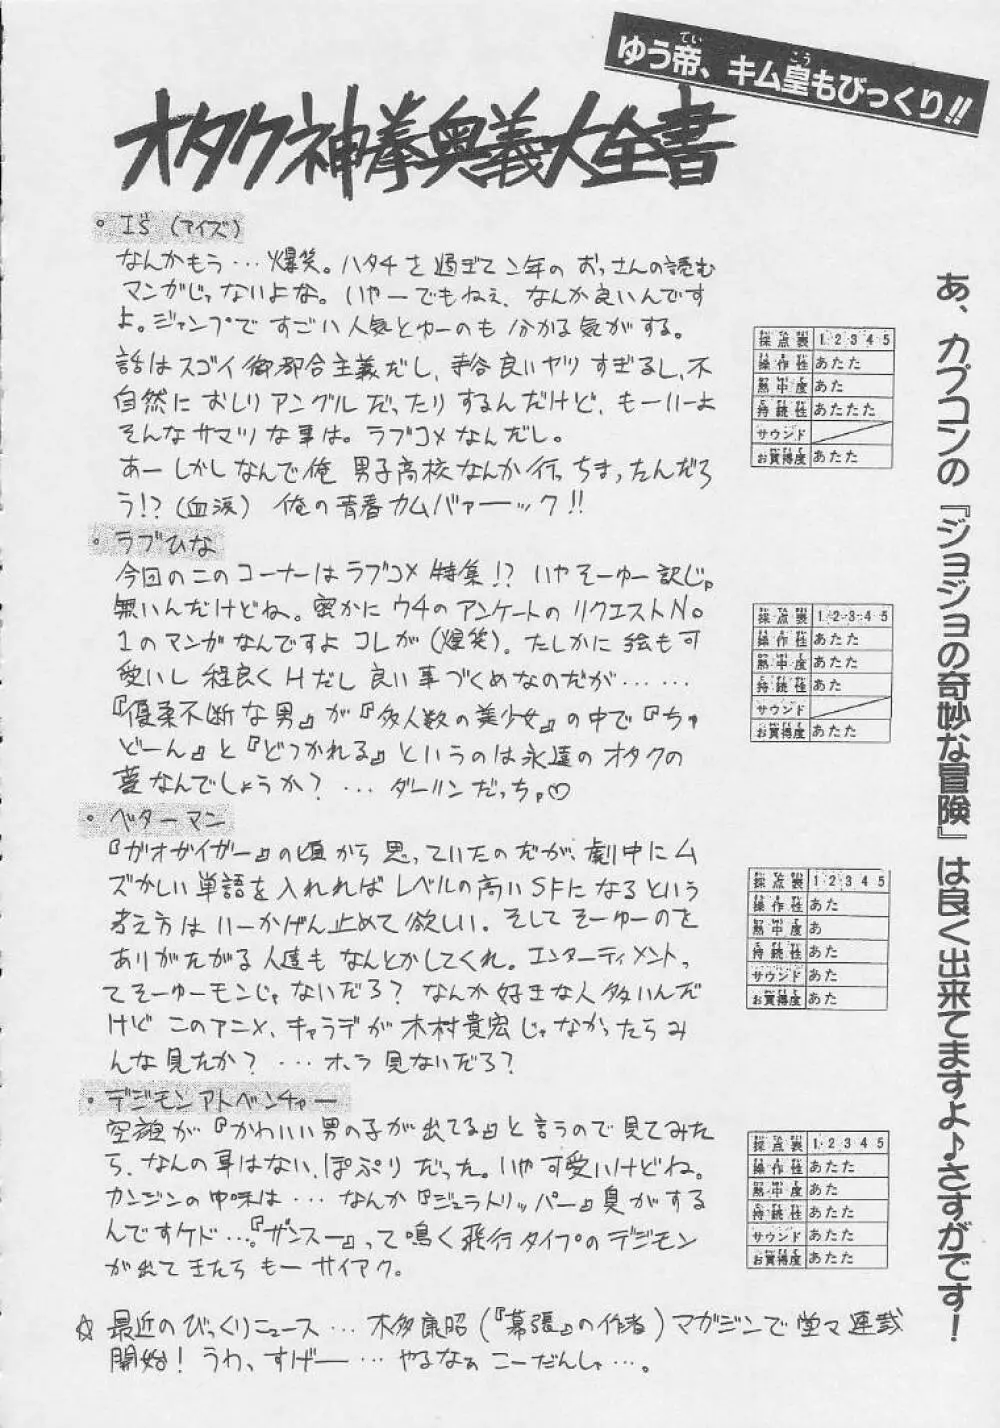 ゆう帝、キム皇もびっくり!!
オタク神拳奥義大全書
・I's(アイズ)
なんかもう…爆笑。ハタチを過ぎて2年のおっさんの読む
マンガじゃないよな。いやーでもねぇ、なんか良いんです
よ。ジャンプですごい人気とゆーのも分かる気がする。
話はスゴイ御都合主義だし、寺谷良いヤツすぎるし、不
自然におしりアングルだったりするんだけど、もーいーよ
そんなサマツな事は。ラブコメなんだし。
あーしかしなんで俺男子高校なんか行っちまったんだろ
う!?(血涙) 俺の青春カムバァーック!!
採点表 1 2 3 4 5
操作性 あたた
熱中度 あた
持続性 あたたた
サウンド
お買得度 あたた
・ラブひな
今回のこのコーナーはラブコメ特集!? いやそーゆー訳じゃ
無いんだけどね。密かにウチのアンケートのリクエストNo
1のマンガなんですよコレが(爆笑)。たしかに絵も可
愛いし程良くHだし良い事づくめなのだが……
『優柔不断な男』が『多人数の美少女』の中で『ちゅ
どーん』と『どつかれる』というのは永遠のオタクの
夢なんでしょうか?…ダーリンだっちゃ♡
採点表 1 2 3 4 5
操作性 あたた
熱中度 あたた
持続性 あた
サウンド
お買得度 あたた
・ベターマン
『ガオガイガー』の頃から思っていたのだが、劇中にム
ズかしい単語を入れればレベルの高いSFになるという
考え方はいーかげん止めて欲しい。そしてそーゆーのを
ありがたがる人達もなんとかしてくれ。エンターティメントっ
てそーゆーモンじゃないだろ?なんか好きな人多いんだ
けどこのアニメ、キャラデが木村貴宏じゃなかったらみ
んな見たか?…ホラ見ないだろ?
採点表 1 2 3 4 5
操作性 あた
熱中度 あ
持続性 あた
サウンド あた
お買得度 あた
・デジモンアドベンチャー
空旅が『かわいい男の子が出てる』と言うので見てみた
ら、なんの事はない、ぽぷりだった。いや可愛いけどね。
カンジンの中味は…なんか『ジュラトリッパー』臭がする
んですケド…。『ザンスー』って鳴く飛行タイプのデジモン
が出てきたらもーサイアク。
採点表 1 2 3 4 5
操作性 あたた
熱中度 あた
持続性 あたた
サウンド あたた
お買得度 あたた
☆ 最近のびっくりニュース…木多康昭(『幕張』の作者)マガジンで堂々連載
開始!うわ、すげー…やるなぁこーだんしゃ…。
あ、カプコンの『ジョジョの奇妙な冒険』は良く出来てますよ♪さすがです!